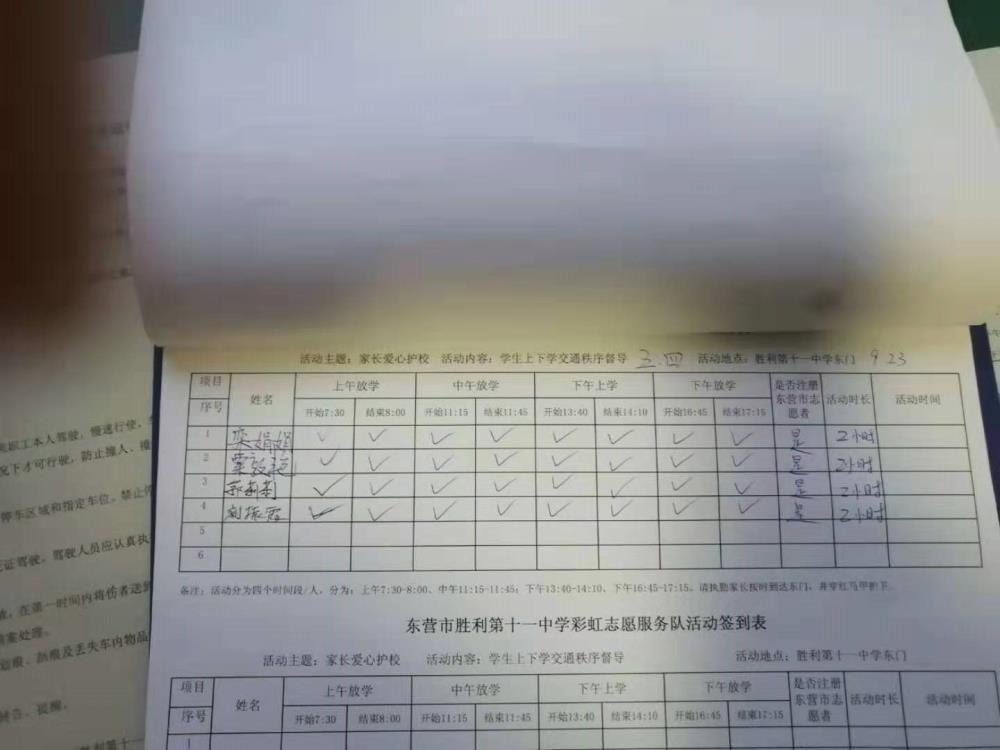 活动主题：家长爱心护校 活动内容：学生上下学交通秩序督导 三.四 活动地点：胜利第十一中学东门 9.23
项目 姓名 上午放学 中午放学 下午上学 下午放学 是否注册东营市志愿者 活动时长 活动时间
序号 开始7:30 结束8:00 开始11:15 结束11:45 开始13:40 结束14:10 开始16:45 结束17:15
1 栾娟娟 ✓ ✓ ✓ ✓ ✓ ✓ ✓ ✓ 是 2小时
2 ✓ ✓ ✓ ✓ ✓ ✓ ✓ ✓ 是 2小时
3 ✓ ✓ ✓ ✓ ✓ ✓ ✓ ✓ 是 2小时
4 刘振霞 ✓ ✓ ✓ ✓ ✓ ✓ ✓ ✓ 是 2小时
5
6
备注：活动分为四个时间段/人，分为：上午7:30-8:00、中午11:15-11:45；下午13:40-14:10、下午16:45-17:15。请执勤家长按时到达东门，并穿红马甲护卫。
东营市胜利第十一中学彩虹志愿服务队活动签到表
活动主题：家长爱心护校 活动内容：学生上下学交通秩序督导 活动地点：胜利第十一中学东门
项目 姓名 上午放学 中午放学 下午上学 下午放学 是否注册东营市志愿者 活动时长 活动时间
序号 开始7:30 结束8:00 开始11:15 结束11:45 开始13:40 结束14:10 开始16:45 结束17:15
1
职工本人驾驶，慢速行使，
况下才可行驶，防止撞人、撞
停车区域和指定车位。禁止停
证驾驶。驾驶人员应认真执
，在第一时间内将伤者送到
案处理。
划痕、刮痕及丢失车内物品
转告、提醒。
胜利第十一